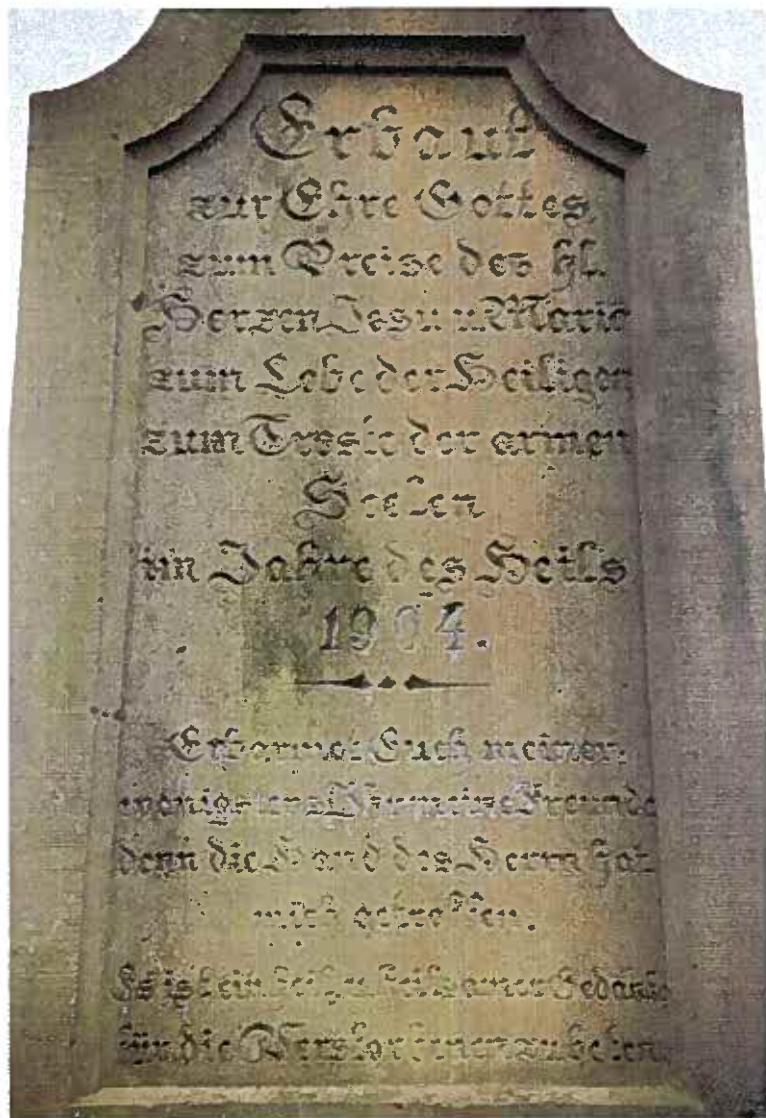 Erbaut
zur Ehre Gottes
zum Preise des hl.
Herzen Jesu u. Mariä
zum Lobe der Heiligen
zum Troste der armen
Seelen
im Jahre des Heils
1904.
Erbarmet Euch meiner,
wenigstens Ihr meine Freunde
denn die Hand des Herrn hat
mich getroffen.
Es ist ein heil. u. heilsamer Gedanke
für die Verstorbenen zu beten.